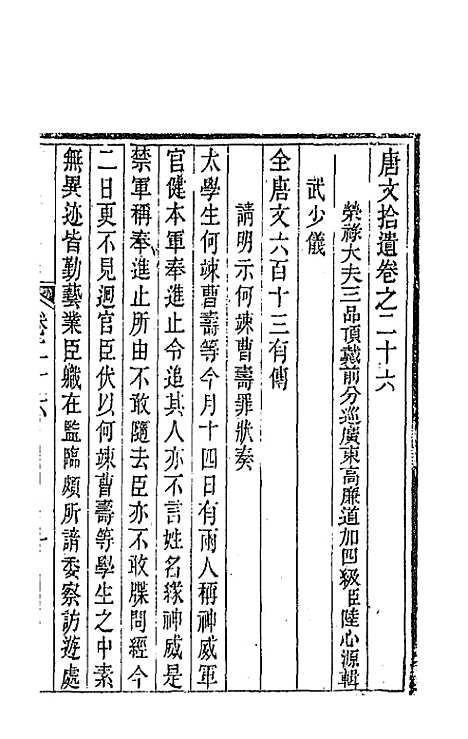 唐文拾遺卷之二十六
榮祿大夫三品頂戴前分巡廣東高廉道加四級臣陸心源輯
武少儀
全唐文六百十三有傳
請明示何竦曹壽罪狀奏
太學生何竦曹壽等今月十四日有兩人稱神威軍
官健本軍奉進止令追其人亦不言姓名緣神威是
禁軍稱奉進止所由不敢隨去臣亦不敢牒問經今
二日更不見迴官臣伏以何竦曹壽等學生之中素
無異迹皆勤藝業臣職在監臨頗所諳委察訪遊處